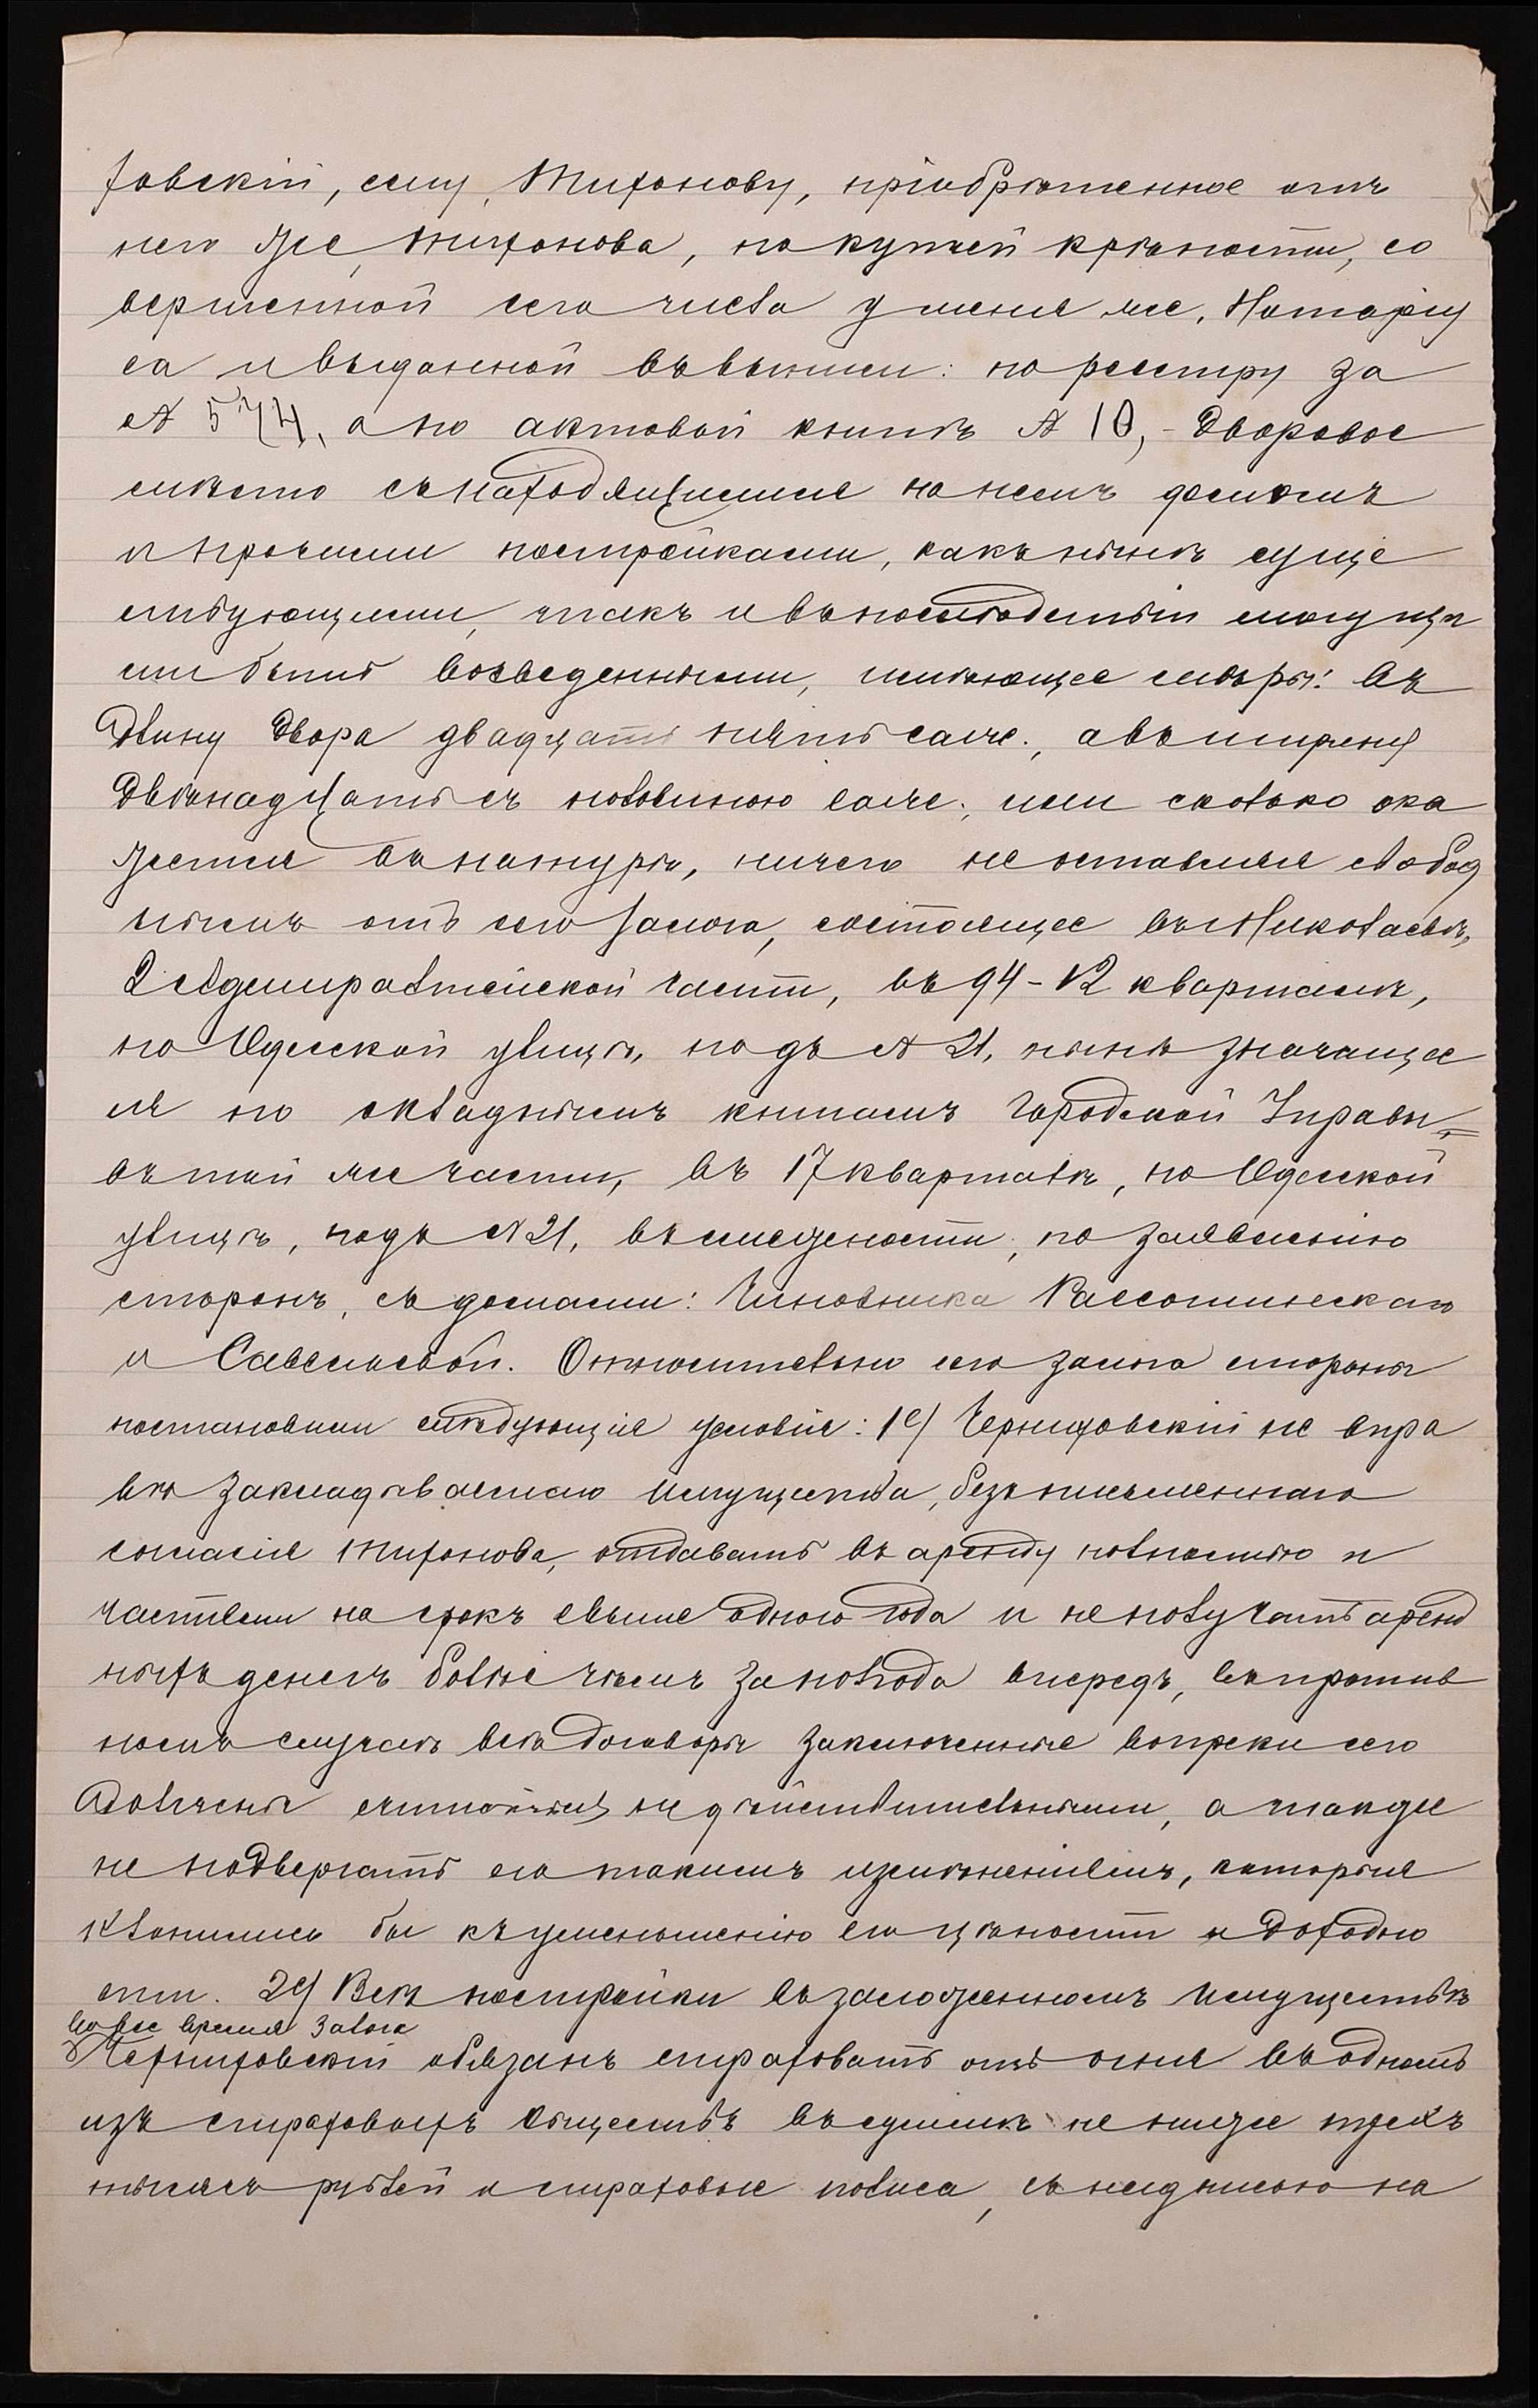 ховскій, ему, Тихонову, пріобрѣтенное отъ
него же, Тихонова, по купчей крѣпости, со
вершенной сего числа у меня же, Нотаріу
са и выданной въ выписи: по реестру за
№ 574, а по актовой книгѣ № 10, - дворовое
мѣсто съ находящимися на немъ домомъ
и прочими постройками, какъ нынѣ суще
ствующими, такъ и въ послѣдствіи могущи
ми быть возведенными, имѣющее мѣры: въ
длину двора двадцать пять саж., а въ ширину
двѣнадцать съ половиною саж., или сколько ока
жется въ натурѣ, ничего не оставляя свобод
нымъ отъ сего залога, состоящее въ г. Николаевѣ,
2 Адмиралтейской части, въ 94-12 кварталѣ,
по Одесской улицѣ, подъ № 21, нынѣ значащее
ся по окладнымъ книгамъ Городской Управы =
въ той же части, въ 17 кварталѣ, по Одесской
улицѣ, подъ № 21, въ смежности, по заявленію
сторонъ, съ домами: Чиновника
и Савельевой. Относительно сего залога стороны
постановили слѣдующія условія: 1е/ Черниховскій не впра
вѣ закладываемаго имущества, безъ письменнаго
согласія Тихонова, отдавать въ аренду полностію и
частями на срокъ свыше одного года и не получать аренд
ныхъ денегъ болѣе чѣмъ за полгода впередъ, въ против
номъ случаѣ всѣ договоры заключенные вопреки сего
должны считаться не дѣйствительными, а также
не подвергать его такимъ измѣненіямъ, которыя
клонились бы къ уменьшенію его цѣнности и доходно
сти. 2е/ Всѣ постройки въ заложенномъ имуществѣ
во все время залога
Черниховскій обязанъ страховать отъ огня въ одномъ
изъ страховыхъ обществъ въ суммѣ не ниже трехъ
тысячъ рублей и страховые полиса, съ надписью на